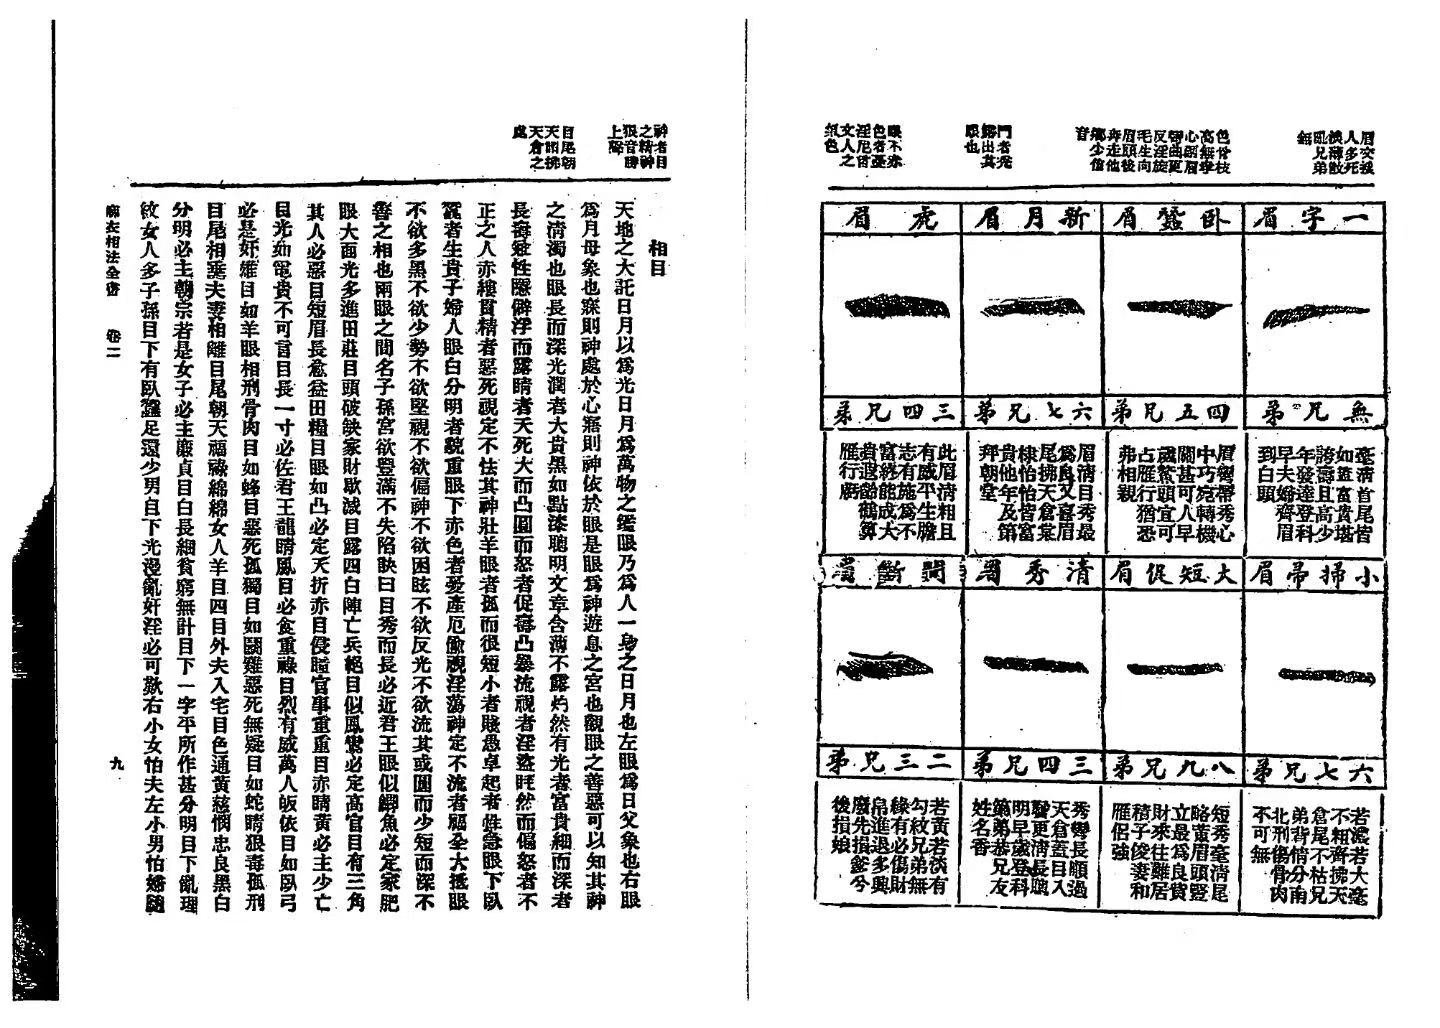 眉交接
人多死
橫薄散
亂兄弟
無
高無學
彎曲更
反淫旋
毛生向
眉頭後
奔走他
鄉少信
音
露出其
眼也
眼不赤
色者憂
文人之
氣色
一字眉
臥蠶眉
新月眉
虎眉
無兄弟
四五兄弟
六七兄弟
三四兄弟
毫清首尾皆
如蓋富貴堪
誇壽且高少
年發達登科
早夫婦齊眉
到白頭
眉彎帶秀心
中巧宛轉機
關甚可人早
歲鰲頭宜可
占雁行猶恐
弗相親
眉清目秀最
為良又喜眉
尾拂天倉棠
棣怡怡皆富
貴他年及第
拜朝堂
此眉清粗且
有威平生膽
志有施為不
富終能成大
貴遐齡鶴算
雁行虧
小掃帚眉
大短促眉
清秀眉
間斷眉
六七兄弟
八九兄弟
三四兄弟
二三兄弟
若濃若大毫
不粗齊拂天
倉尾不枯兄
弟背情分南
北刑傷骨肉
不可無
短秀毫清尾
略黃眉頭豎
立最為良貲
財來往難居
積子俊妻和
雁侶強
秀彎長順過
天倉蓋目入
鬢更清長聰
明早歲登科
第弟恭兄友
姓名香
若黃若淡有
勾紋兄弟無
緣有必傷財
帛進退多興
廢先損爹兮
後損娘
神者目
之精神
狠音勝
上聲
目尾朝
天闊拂
天倉之
處
相目
天地之大託日月以為光日月為萬物之鑑眼乃為人一身之日月也左眼為日父象也右眼
為月母象也寐則神處於心寤則神依於眼是眼為神遊息之宮也觀眼之善惡可以知其神
之清濁也眼長而深光潤者大貴黑如點漆聰明文章含薄不露灼然有光者富貴細而深者
長壽兼性隱僻浮而露睛者夭死大而凸圓而怒者促壽凸暴流視者淫盜眊然而偏怒者不
正之人赤縷貫精者惡死視定不怯其神壯羊眼者孤而很短小者賤愚卓起者性急眼下臥
蠶者生貴子婦人眼白分明者貌重眼下赤色者憂產厄偷視淫蕩神定不流者福全大抵眼
不欲多黑不欲少勢不欲堅視不欲偏神不欲困眩不欲反光不欲流其或圓而少短而深不
善之相也兩眼之間名子孫宮欲豐滿不失陷缺曰目秀而長必近君王眼似鯽魚必定家肥
眼大面光多進田莊目頭破缺家財歇滅目露四白陣亡兵絕目似鳳鸞必定高官目有三角
其人必惡目短眉長愈益田糧目眼如凸必定夭折赤目侵瞳官事重重目赤睛黃必主少亡
目光如電貴不可言目長一寸必佐君王龍睛鳳目必食重祿目烈有威萬人皈依目如臥弓
必是奸雄目如羊眼相刑骨肉目如蜂目惡死孤獨目如鬬雞惡死無疑目如蛇睛狠毒孤刑
目尾相垂夫妻相離目尾朝天福祿綿綿女人羊目四目外夫入宅目色通黃慈憫忠良黑白
分明必主朝宗者是女子必主廉貞目白長細貧窮無計目下一字平所作甚分明目下亂理
紋女人多子孫目下有臥蠶足還少男目下光漫亂奸淫必可歎右小女怕夫左小男怕婦隨
麻衣相法全書　卷二　九